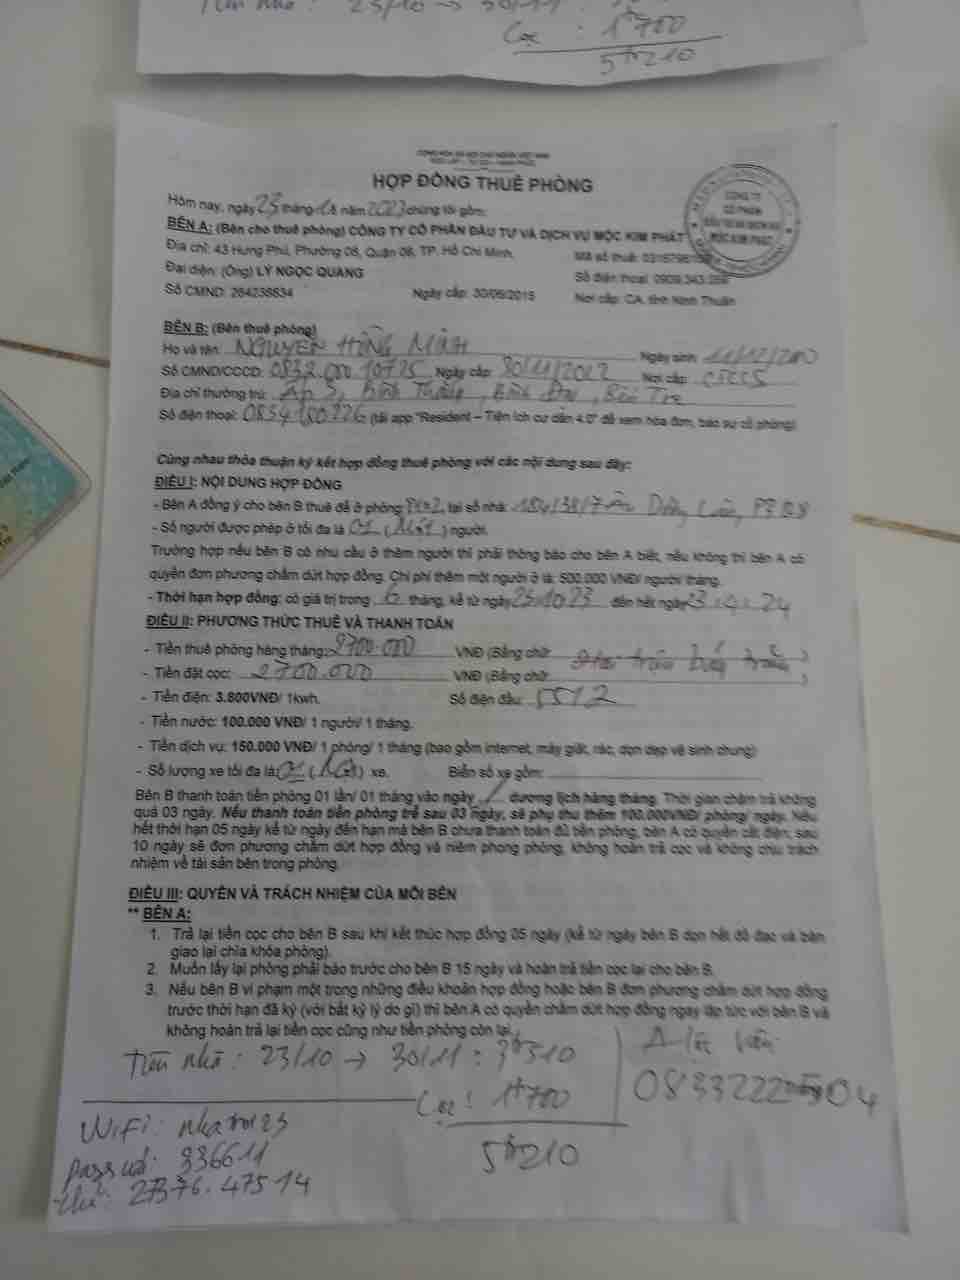 Tiền nhà : 23/10 → 30/11 :
Cọc : 1tr700
5tr210
CỘNG HÒA XÃ HỘI CHỦ NGHĨA VIỆT NAM
ĐỘC LẬP - TỰ DO - HẠNH PHÚC
HỢP ĐỒNG THUÊ PHÒNG
CÔNG TY
CỔ PHẦN
ĐẦU TƯ VÀ DỊCH VỤ
MỘC KIM PHÁT
Hôm nay, ngày 23 tháng năm 2023 chúng tôi gồm:
BÊN A: (Bên cho thuê phòng) CÔNG TY CỔ PHẦN ĐẦU TƯ VÀ DỊCH VỤ MỘC KIM PHÁT
Địa chỉ: 43 Hưng Phú, Phường 08, Quận 08, TP. Hồ Chí Minh. Mã số thuế:
Đại diện: (Ông) LÝ NGỌC QUANG Số điện thoại: 0909.343.
Số CMND: 264238634 Ngày cấp: 30/06/2015 Nơi cấp: CA. tỉnh Ninh Thuận
BÊN B: (Bên thuê phòng)
Họ và tên: NGUYỄN HỒNG Ngày sinh: /12/2000
Số CMND/CCCD: Ngày cấp: Nơi cấp:
Địa chỉ thường trú: Ấp 3, Bình Thắng, Bình Đại, Bến Tre
Số điện thoại: 0834180226 (tải app "Resident – Tiện ích cư dân 4.0" để xem hóa đơn, báo sự cố phòng)
Cùng nhau thỏa thuận ký kết hợp đồng thuê phòng với các nội dung sau đây:
ĐIỀU I: NỘI DUNG HỢP ĐỒNG
- Bên A đồng ý cho bên B thuê để ở phòng tại số nhà: Dương Lân, P2 Q8
- Số người được phép ở tối đa là 01 (Một) người.
Trường hợp nếu bên B có nhu cầu ở thêm người thì phải thông báo cho bên A biết, nếu không thì bên A có
quyền đơn phương chấm dứt hợp đồng. Chi phí thêm một người ở là: 500.000 VNĐ/ người/ tháng.
- Thời hạn hợp đồng: có giá trị trong 6 tháng, kể từ ngày 23.10.23 đến hết ngày 23.4.24
ĐIỀU II: PHƯƠNG THỨC THUÊ VÀ THANH TOÁN
- Tiền thuê phòng hàng tháng: 2700.000 VNĐ (Bằng chữ: Hai triệu bảy trăm)
- Tiền đặt cọc: 2700.000 VNĐ (Bằng chữ: )
- Tiền điện: 3.800VNĐ/ 1kwh. Số điện đầu: 5512
- Tiền nước: 100.000 VNĐ/ 1 người/ 1 tháng.
- Tiền dịch vụ: 150.000 VNĐ/ 1 phòng/ 1 tháng (bao gồm internet, máy giặt, rác, dọn dẹp vệ sinh chung)
- Số lượng xe tối đa là: 01 (Một) xe. Biển số xe gồm:
Bên B thanh toán tiền phòng 01 lần/ 01 tháng vào ngày 1 dương lịch hàng tháng. Thời gian chậm trả không
quá 03 ngày. Nếu thanh toán tiền phòng trễ sau 03 ngày, sẽ phụ thu thêm 100.000VNĐ/ phòng/ ngày. Nếu
hết thời hạn 05 ngày kể từ ngày đến hạn mà bên B chưa thanh toán đủ tiền phòng, bên A có quyền cắt điện, sau
10 ngày sẽ đơn phương chấm dứt hợp đồng và niêm phong phòng, không hoàn trả cọc và không chịu trách
nhiệm về tài sản bên trong phòng.
ĐIỀU III: QUYỀN VÀ TRÁCH NHIỆM CỦA MỖI BÊN
** BÊN A:
1. Trả lại tiền cọc cho bên B sau khi kết thúc hợp đồng 05 ngày (kể từ ngày bên B dọn hết đồ đạc và bàn
giao lại chìa khóa phòng).
2. Muốn lấy lại phòng phải báo trước cho bên B 15 ngày và hoàn trả tiền cọc lại cho bên B.
3. Nếu bên B vi phạm một trong những điều khoản hợp đồng hoặc bên B đơn phương chấm dứt hợp đồng
trước thời hạn đã ký (với bất kỳ lý do gì) thì bên A có quyền chấm dứt hợp đồng ngay lập tức với bên B và
không hoàn trả lại tiền cọc cũng như tiền phòng còn lại.
Tiền nhà : 23/10 → 30/11 : 3tr510
Cọc : 1tr700
5tr210
A
0833222 04
WiFi: nhatro123
pass wifi: 336611